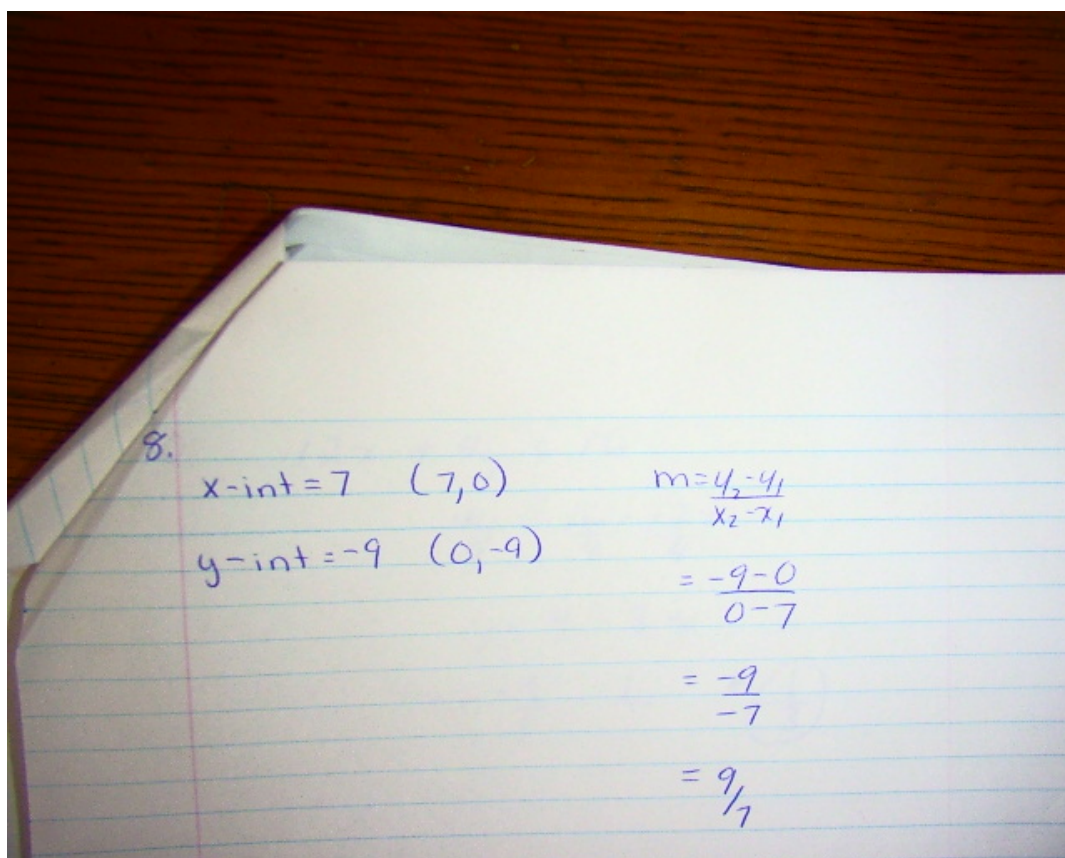 8.
x-int = 7 (7,0)
y-int = -9 (0,-9)
m = y₂-y₁
x₂-x₁
= -9-0
0-7
= -9
-7
= 9/7